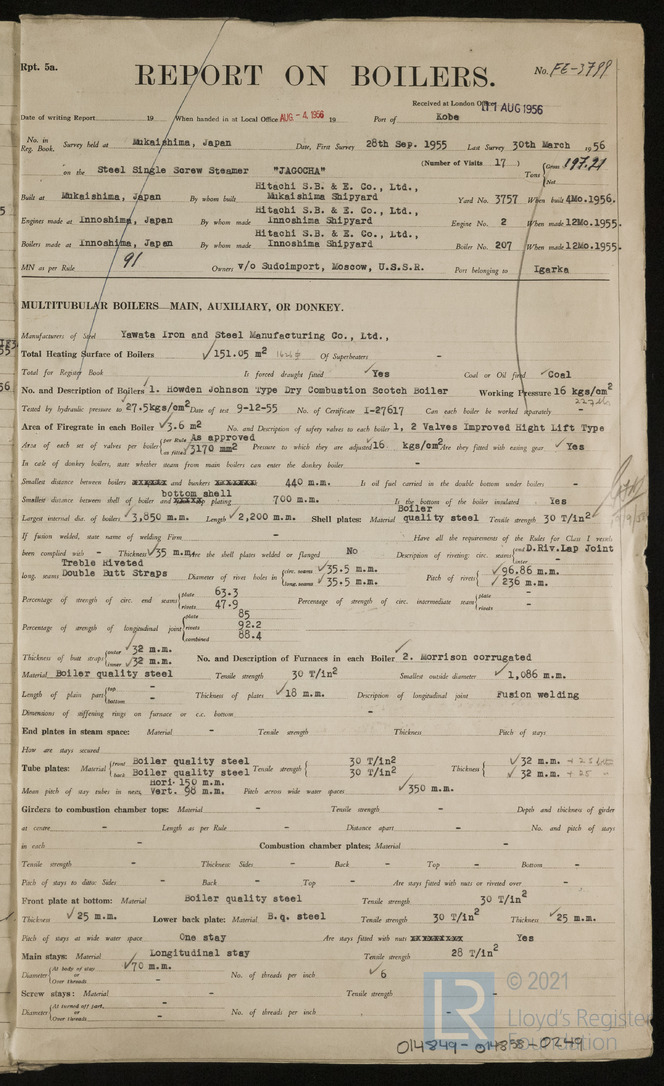 Rpt. 5a.
REPORT ON BOILERS.
No. FE-3799
Received at London Office 11 AUG 1956
Date of writing Report 19 When handed in at Local Office AUG - 4 1956 19 Port of Kobe
No. in Reg. Book. Survey held at Mukaishima, Japan Date, First Survey 28th Sep. 1955 Last Survey 30th March 1956
on the Steel Single Screw Steamer "JAGOCHA" (Number of Visits 17) Tons Gross 197.21 Net
Built at Mukaishima, Japan By whom built Hitachi S.B. & E. Co., Ltd., Mukaishima Shipyard Yard No. 3757 When built 4Mo.1956.
Engines made at Innoshima, Japan By whom made Hitachi S.B. & E. Co., Ltd., Innoshima Shipyard Engine No. 2 When made 12Mo.1955.
Boilers made at Innoshima, Japan By whom made Hitachi S.B. & E. Co., Ltd., Innoshima Shipyard Boiler No. 207 When made 12Mo.1955.
MN as per Rule 91 Owners v/o Sudoimport, Moscow, U.S.S.R. Port belonging to Igarka
MULTITUBULAR BOILERS—MAIN, AUXILIARY, OR DONKEY.
Manufacturers of Steel Yawata Iron and Steel Manufacturing Co., Ltd.,
Total Heating Surface of Boilers 151.05 m2 Of Superheaters -
Total for Register Book Is forced draught fitted Yes Coal or Oil fired Coal
No. and Description of Boilers 1. Howden Johnson Type Dry Combustion Scotch Boiler Working Pressure 16 kgs/cm2
Tested by hydraulic pressure to 27.5kgs/cm2 Date of test 9-12-55 No. of Certificate I-27617 Can each boiler be worked separately -
Area of Firegrate in each Boiler 3.6 m2 No. and Description of safety valves to each boiler 1, 2 Valves Improved Hight Lift Type
Area of each set of valves per boiler per Rule As approved as fitted 3170 mm2 Pressure to which they are adjusted 16 kgs/cm2 Are they fitted with easing gear Yes
In case of donkey boilers, state whether steam from main boilers can enter the donkey boiler -
Smallest distance between and bunkers 440 m.m. Is oil fuel carried in the double bottom under boilers -
Smallest distance between shell of boiler and bottom shell plating 700 m.m. Is the bottom of the boiler insulated Yes
Largest internal dia. of boilers 3,850 m.m. Length 2,200 m.m. Shell plates: Material Boiler quality steel Tensile strength 30 T/in2
If fusion welded, state name of welding Firm - Have all the requirements of the Rules for Class I vessels
been complied with - Thickness 35 m.m. Are the shell plates welded or flanged No Description of riveting: circ. seams end D.Riv.Lap Joint inter -
long. seams Treble Riveted Double Butt Straps Diameter of rivet holes in circ. seams 35.5 m.m. long. seams 35.5 m.m. Pitch of rivets 96.86 m.m. 236 m.m.
Percentage of strength of circ. end seams plate 63.3 rivets 47.9 Percentage of strength of circ. intermediate seam plate - rivets -
Percentage of strength of longitudinal joint plate 85 rivets 92.2 combined 88.4
Thickness of butt straps outer 32 m.m. inner 32 m.m. No. and Description of Furnaces in each Boiler 2. Morrison corrugated
Material Boiler quality steel Tensile strength 30 T/in2 Smallest outside diameter 1,086 m.m.
Length of plain part top - bottom - Thickness of plates 18 m.m. Description of longitudinal joint Fusion welding
Dimensions of stiffening rings on furnace or c.c. bottom -
End plates in steam space: Material - Tensile strength - Thickness - Pitch of stays -
How are stays secured -
Tube plates: Material front Boiler quality steel back Boiler quality steel Tensile strength 30 T/in2 30 T/in2 Thickness 32 m.m. 32 m.m.
Mean pitch of stay tubes in nests Hori. 150 m.m. Vert. 98 m.m. Pitch across wide water spaces 350 m.m.
Girders to combustion chamber tops: Material - Tensile strength - Depth and thickness of girder
at centre - Length as per Rule - Distance apart - No. and pitch of stays
in each - Combustion chamber plates; Material -
Tensile strength - Thickness: Sides - Back - Top - Bottom -
Pitch of stays to ditto: Sides - Back - Top - Are stays fitted with nuts or riveted over -
Front plate at bottom: Material Boiler quality steel Tensile strength 30 T/in2
Thickness 25 m.m. Lower back plate: Material B.q. steel Tensile strength 30 T/in2 Thickness 25 m.m.
Pitch of stays at wide water space One stay Are stays fitted with nuts Yes
Main stays: Material Longitudinal stay Tensile strength 28 T/in2
Diameter At body of stay or Over threads 70 m.m. - No. of threads per inch 6
Screw stays: Material - Tensile strength -
Diameter At turned off part, or Over threads - No. of threads per inch -
LR © 2021 Lloyd's Register Foundation
014849-014858-0249